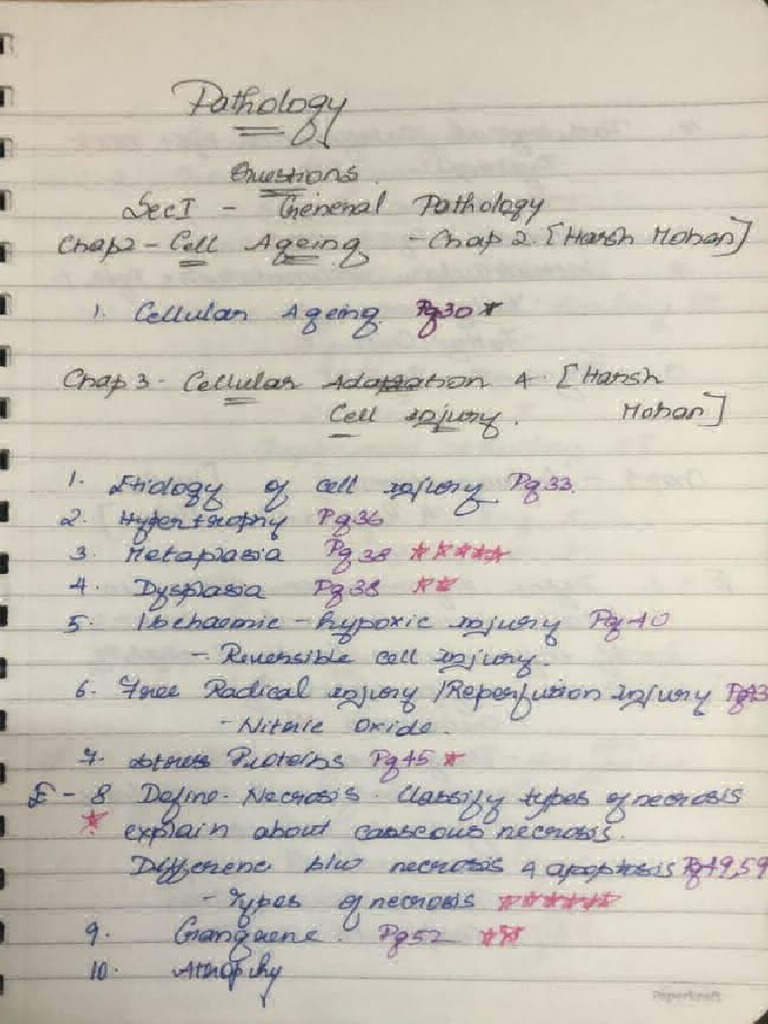 Pathology
Questions.
Sec I - General Pathology
Chap2 - Cell Ageing - Chap 2. [Harsh Mohan]
1. Cellular Ageing Pg30 *
Chap 3 - Cellular Adaptation & [Harsh
Cell injury. Mohan]
1. Etiology of cell injury Pg33.
2. Hypertrophy Pg36
3. Metaplasia Pg38 *****
4. Dysplasia Pg38 **
5. Ischaemic - hypoxic injury Pg40
- Reversible cell injury.
6. Free Radical injury / Reperfusion injury
- Nitric Oxide.
7. Stress Proteins Pg45 *
E - 8 Define Necrosis. Classify types of necrosis
* explain about caseous necrosis.
Difference b/w necrosis & apoptosis Pg49,59
- Types of necrosis ******
9. Gangrene. Pg52 **
10. Atrophy
Papercraft